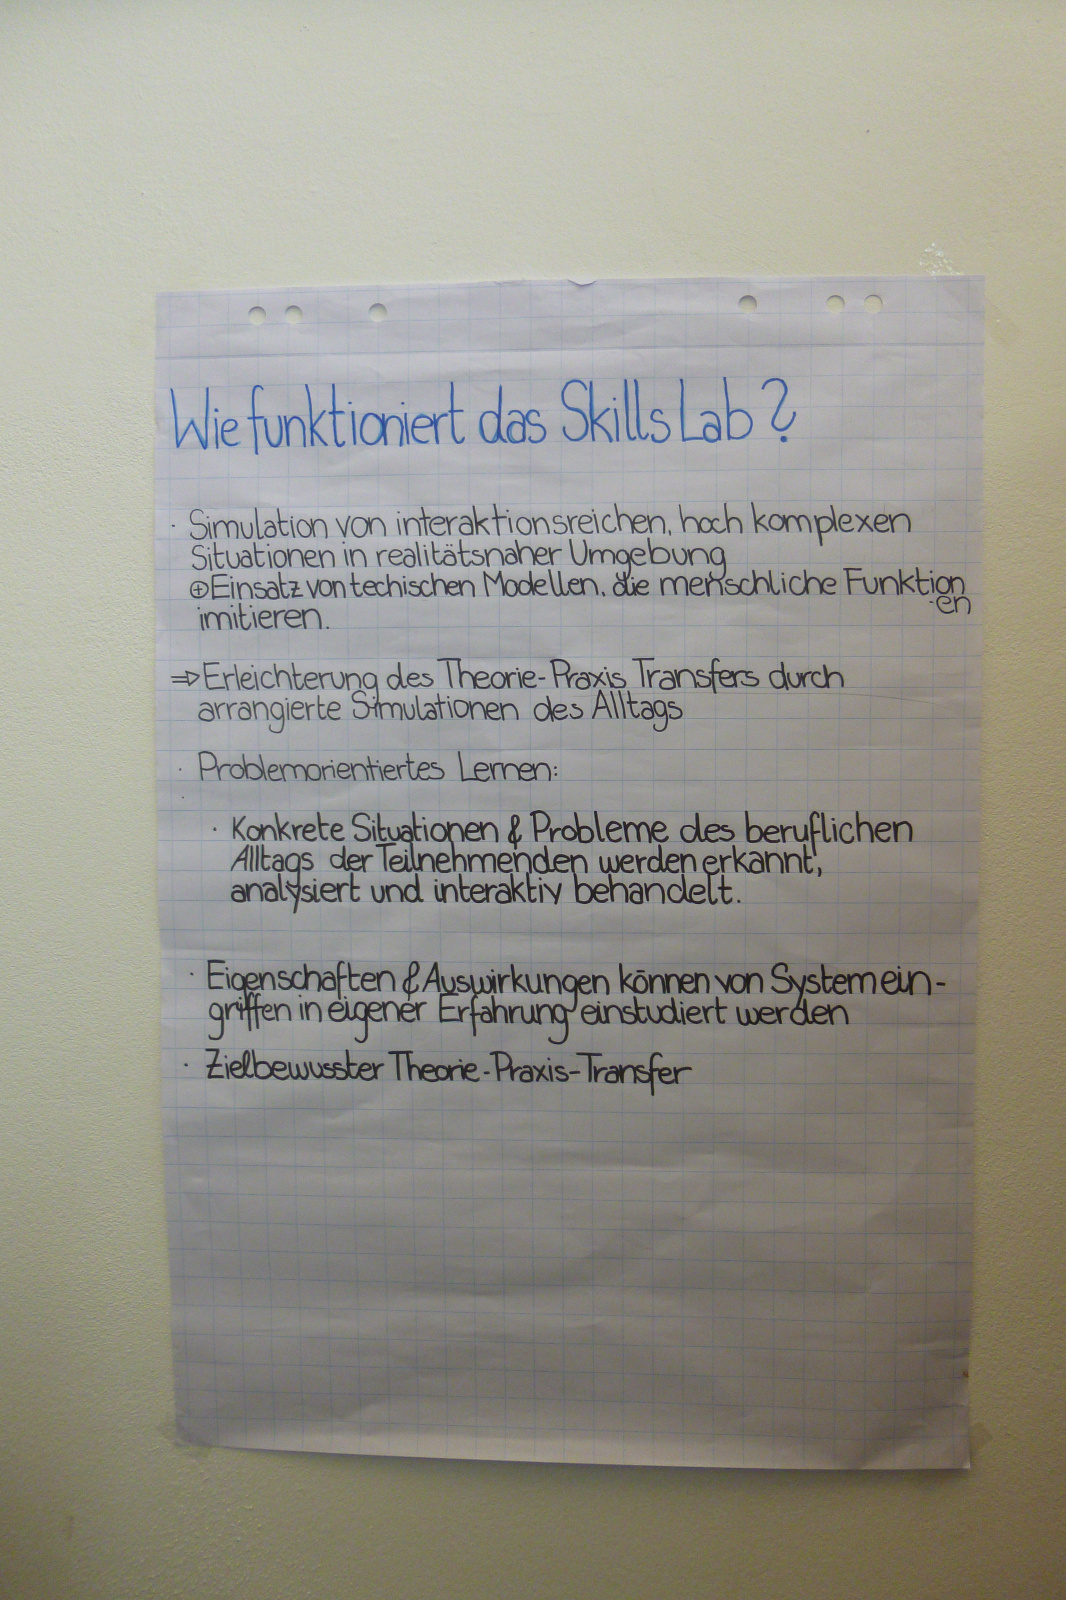 Wie funktioniert das Skills Lab?
· Simulation von interaktionsreichen, hoch komplexen
Situationen in realitätsnaher Umgebung
⊕ Einsatz von techischen Modellen, die menschliche Funktion
-en
imitieren.
⇒ Erleichterung des Theorie-Praxis Transfers durch
arrangierte Simulationen des Alltags
· Problemorientiertes Lernen:
· Konkrete Situationen & Probleme des beruflichen
Alltags der Teilnehmenden werden erkannt,
analysiert und interaktiv behandelt.
· Eigenschaften & Auswirkungen können von Systemein-
griffen in eigener Erfahrung einstudiert werden
· Zielbewusster Theorie-Praxis-Transfer